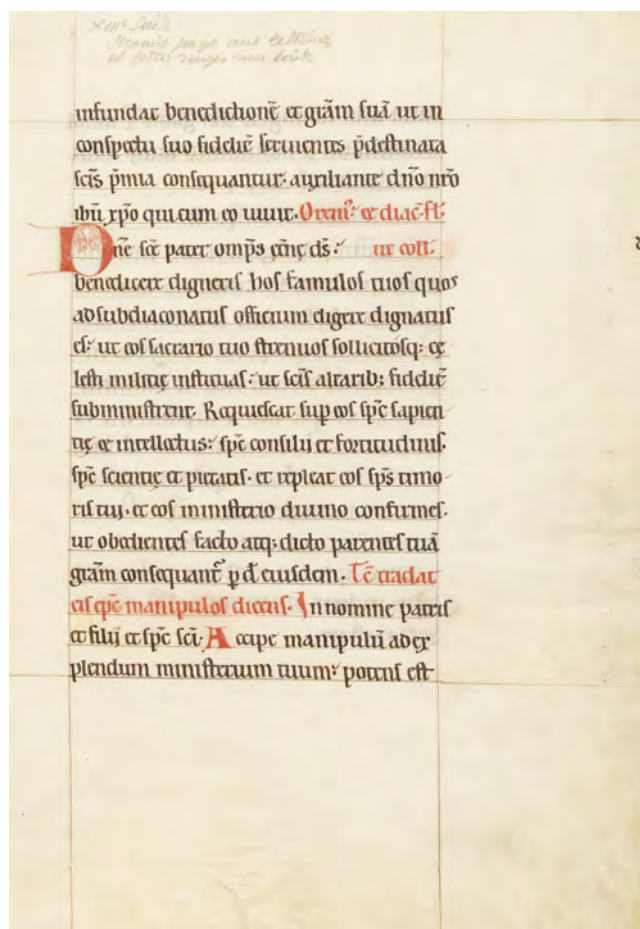 XIIIe siècle
seconde page avec lettrine
et lettre rouges sans suite
infundat benedictionē et grām suā ut in
conspectu suo fideliť seruientes p̄destinata
sc̄is p̄mia consequantur· auxiliante dn̄o nr̄o
ihū xp̄o qui cum eo uiuit· Orem᷒· et diac̄· fl̄·
Dn̄e sc̄e pater omp̄s et̄nę ds̄· ut coll̄·
benedicere digneris hos famulos tuos quos
ad subdiaconatus officium eligere dignatus
es· ut eos sacrario tuo strenuos sollicitosq; cę
lesti militię instituas· ut sc̄is altarib; fideliť
subministrent· Requiescat sup eos sp̄c sapien
tię et intellectus· sp̄c consilij et fortitudinis·
sp̄c scientię et pietatis· et repleat eos sp̄s timo
ris tuj· et eos ministerio diuino confirmes·
ut obedientes facto atq; dicto parentes tuā
grām consequant᷑ p d̄ eiusdem· Tc̄ tradat
eis ep̄c manipulos dicens· In nomine patris
et filij et sp̄c sc̄i· Accipe manipulū ad ex
plendum ministerium tuum· potens est